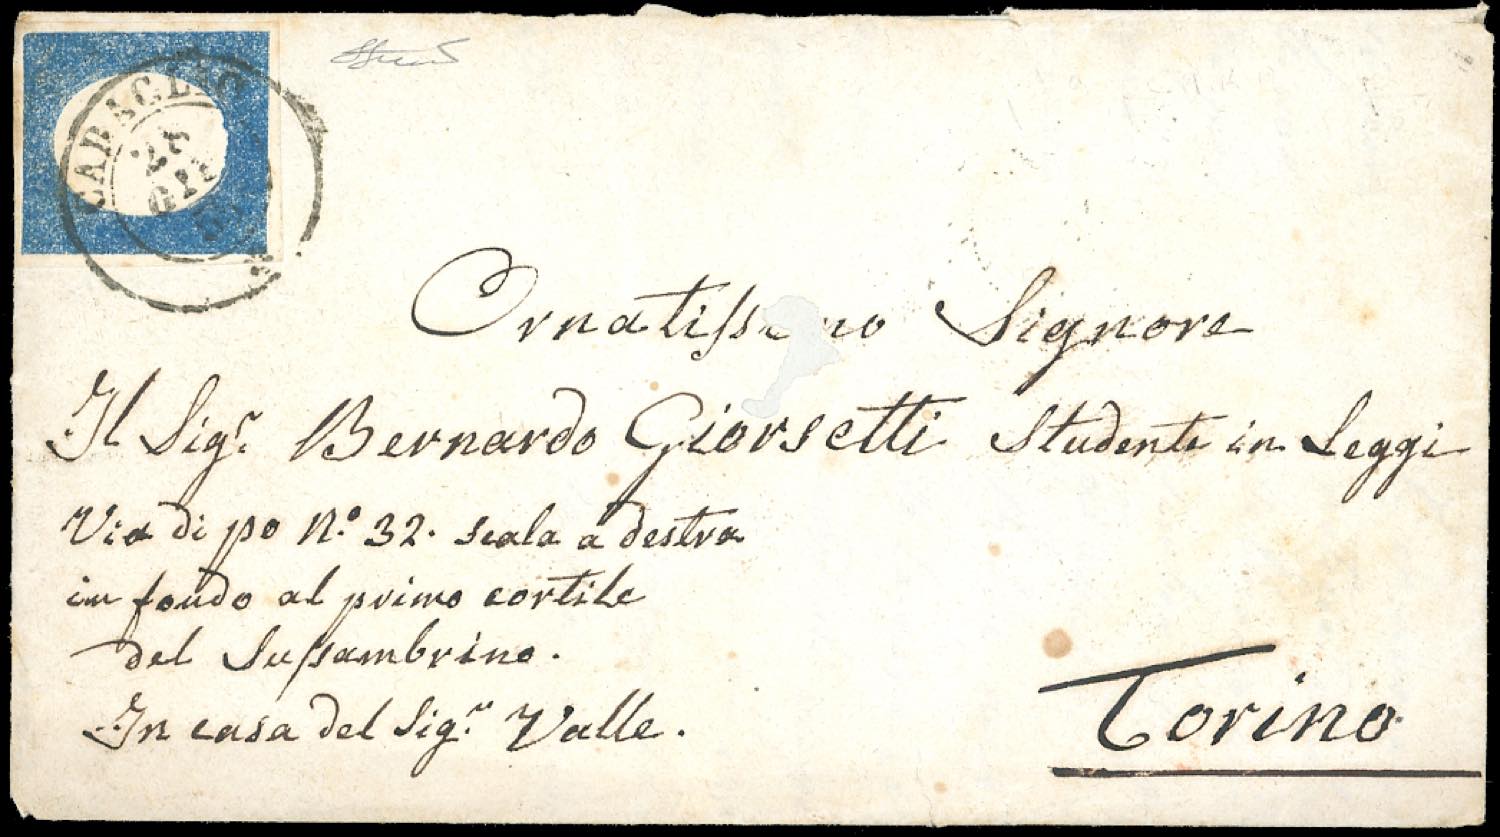 CARAGLIO
28
GIU
Ornatissimo Signore
Il Sigr. Bernardo Giorsetti Studente in Leggi
Via di po N.o 32. scala a destra
in fondo al primo cortile
del Sussambrino.
In casa del Sigr. Valle.
Torino